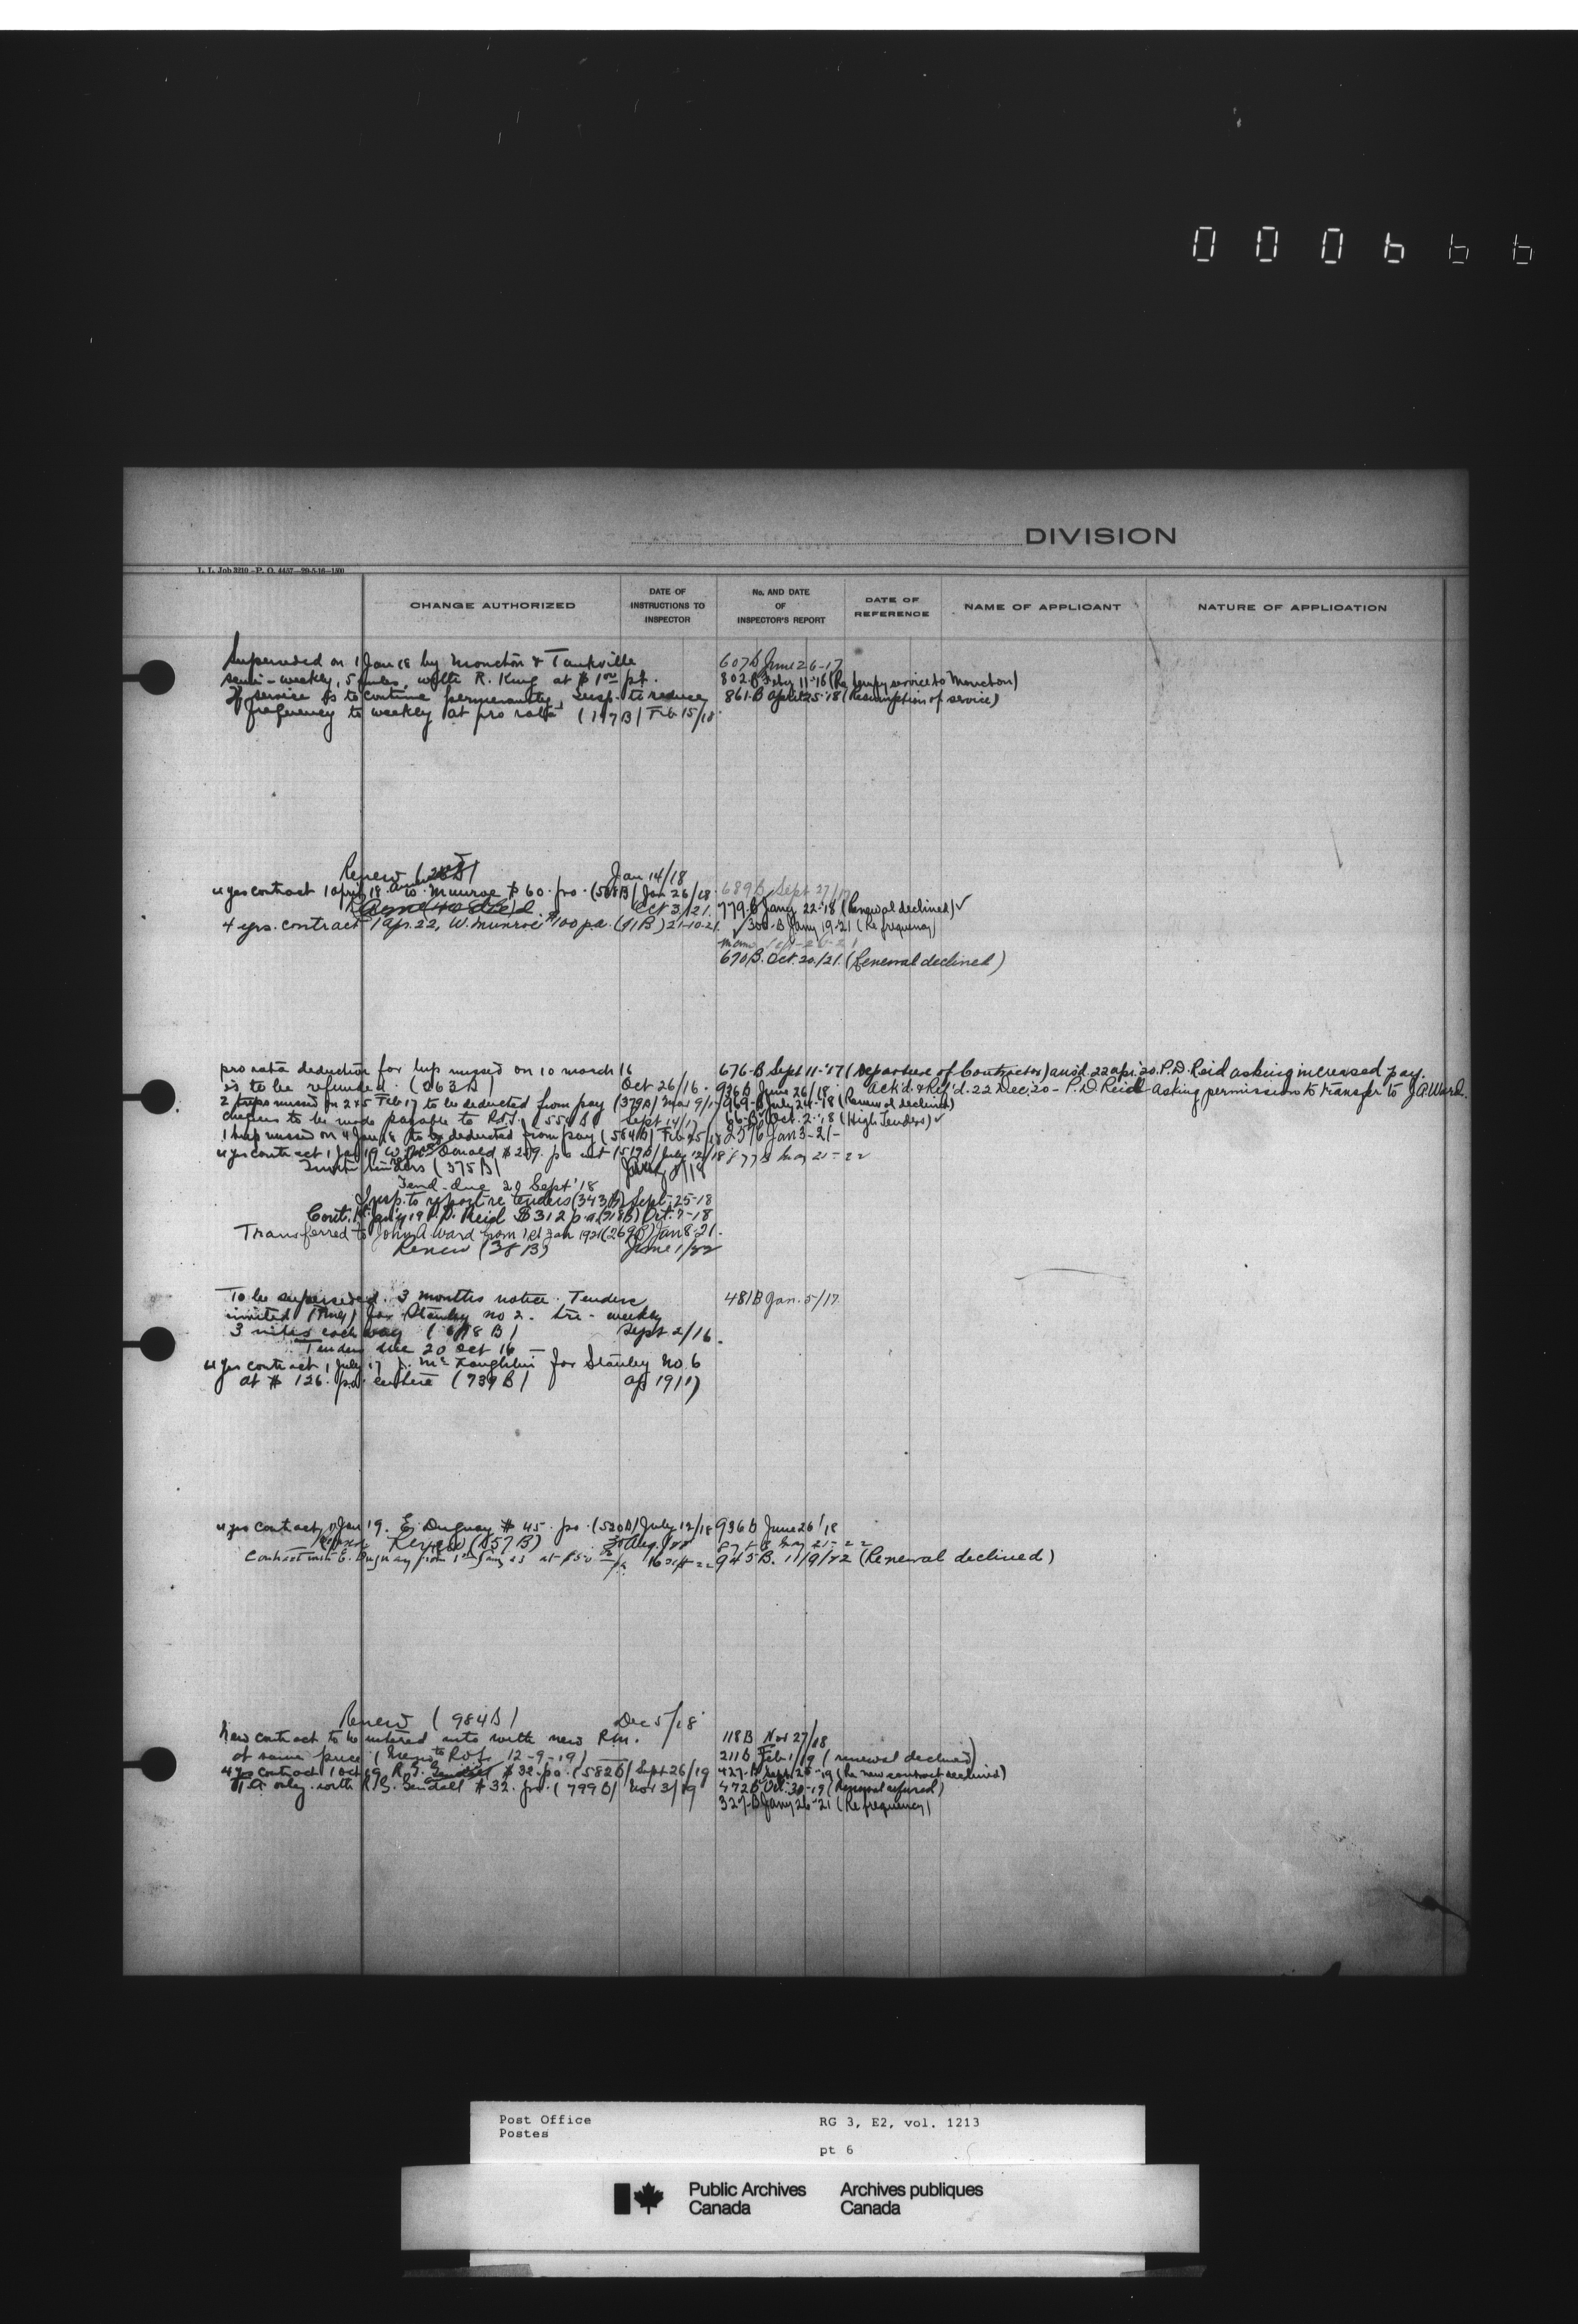 000666
DIVISION
L. L. Job 3210 - P. O. 4457-29-5-16-1500
CHANGE AUTHORIZED
DATE OF INSTRUCTIONS TO INSPECTOR
No. AND DATE OF INSPECTOR'S REPORT
DATE OF REFERENCE
NAME OF APPLICANT
NATURE OF APPLICATION
Superseded on 1 Jan 18 by Moncton & Tankville 607 B June 26-17
semi-weekly, 5 miles, with R. King at $1.00 pt. 802-B Feby 11-16 (Re tempy service to Moncton)
If service is to continue permanently, insp. to reduce 861-B April 25-'18 (Resumption of service)
frequency to weekly at pro rata (117B) Feb 15/18
Renew Jan 14/18
4 yrs contract 1 April 18 W. Munroe $60. pa. (568B) Jan 26/18. 689B Sept 27/17
Oct 3/21. 779-B Jany 22-'18 (Renewal declined) ✓
4 yrs. contract 1 Apr. 22, W. Munroe $100 p.a. (91B) 21-10-21. ✓ 300-B Jany 19-21 (Re frequency)
670B. Oct. 20./21. (Renewal declined)
pro rata deduction for trip missed on 10 March 16 676-B Sept 11-'17 (Departure of Contractor) ans'd. 22 Apr. 20. P.D. Reid asking increased pay.
is to be refunded. (263B) Oct 26/16. 936B June 26/18. Ack'd. & Ref'd. 22 Dec. 20 - P.D. Reid asking permission to transfer to J.A. Ward.
2 trips missed on 2 & 5 Feb 17 to be deducted from pay (379B) Mar 9/17 969-B July 24-'18 (Renewal declined)
cheques to be made payable to Sept 14/17 66-B Oct. 2-'18 (High Tenders) ✓
1 trip missed on 4 Jan 18 to be deducted from pay (584B) Feb 25/18 Jan 3-21-
4 yrs contract 1 Jan 19 W. McDonald $209. pa (519B) July 12/18 877B May 21-22
tenders (375B)
Tend. due 20 Sept '18
Insp. to report re tenders (343B) Sept-25-18
Cont. 1st Jan'y 19 P.D. Reid $312 p.a. (318B) Oct. 7-18
Transferred to John A Ward from 1st Jan 1921 (269B) Jan 8-21.
Renew (38B) June 1/22
To be superseded. 3 months notice. Tenders 481B Jan. 5/17
invited for Stanley no 2. tri-weekly
3 miles each way (618B) Sept 2/16.
Tenders due 20 Oct 16
4 yrs contract 1 July 17 J. McLaughlin for Stanley No. 6
at $126. pa. (739B) Ap 19/17
4 yrs contract 1 Jan 19. E. Duguay $45. pa. (520B) July 12/18 936B June 26/18
Renew (857B) Aug. May 21-22
Contract with E. Duguay from 1st Jany 23 at $50 16 Sept 22 945B. 11/9/22 (Renewal declined)
Renew (984B) Dec 5/18
New contract to be entered into with new P.M. 118B Nov 27/18
at same price (12-9-19) 211B Feb 1/19 (renewal declined)
4 yrs contract 1 Oct 19 R.G. Sendall $32. pa. (582B) Sept 26/19 427-B Sept. 20-'19 (Re new contract declined)
only with R.G. Sendall $32. pa. (799B) Nov 3/19 472B Oct. 30-19 (Renewal refused)
327-B Jany 26-'21 (Re frequency)
Post Office RG 3, E2, vol. 1213
Postes
pt 6
Public Archives Archives publiques
Canada Canada